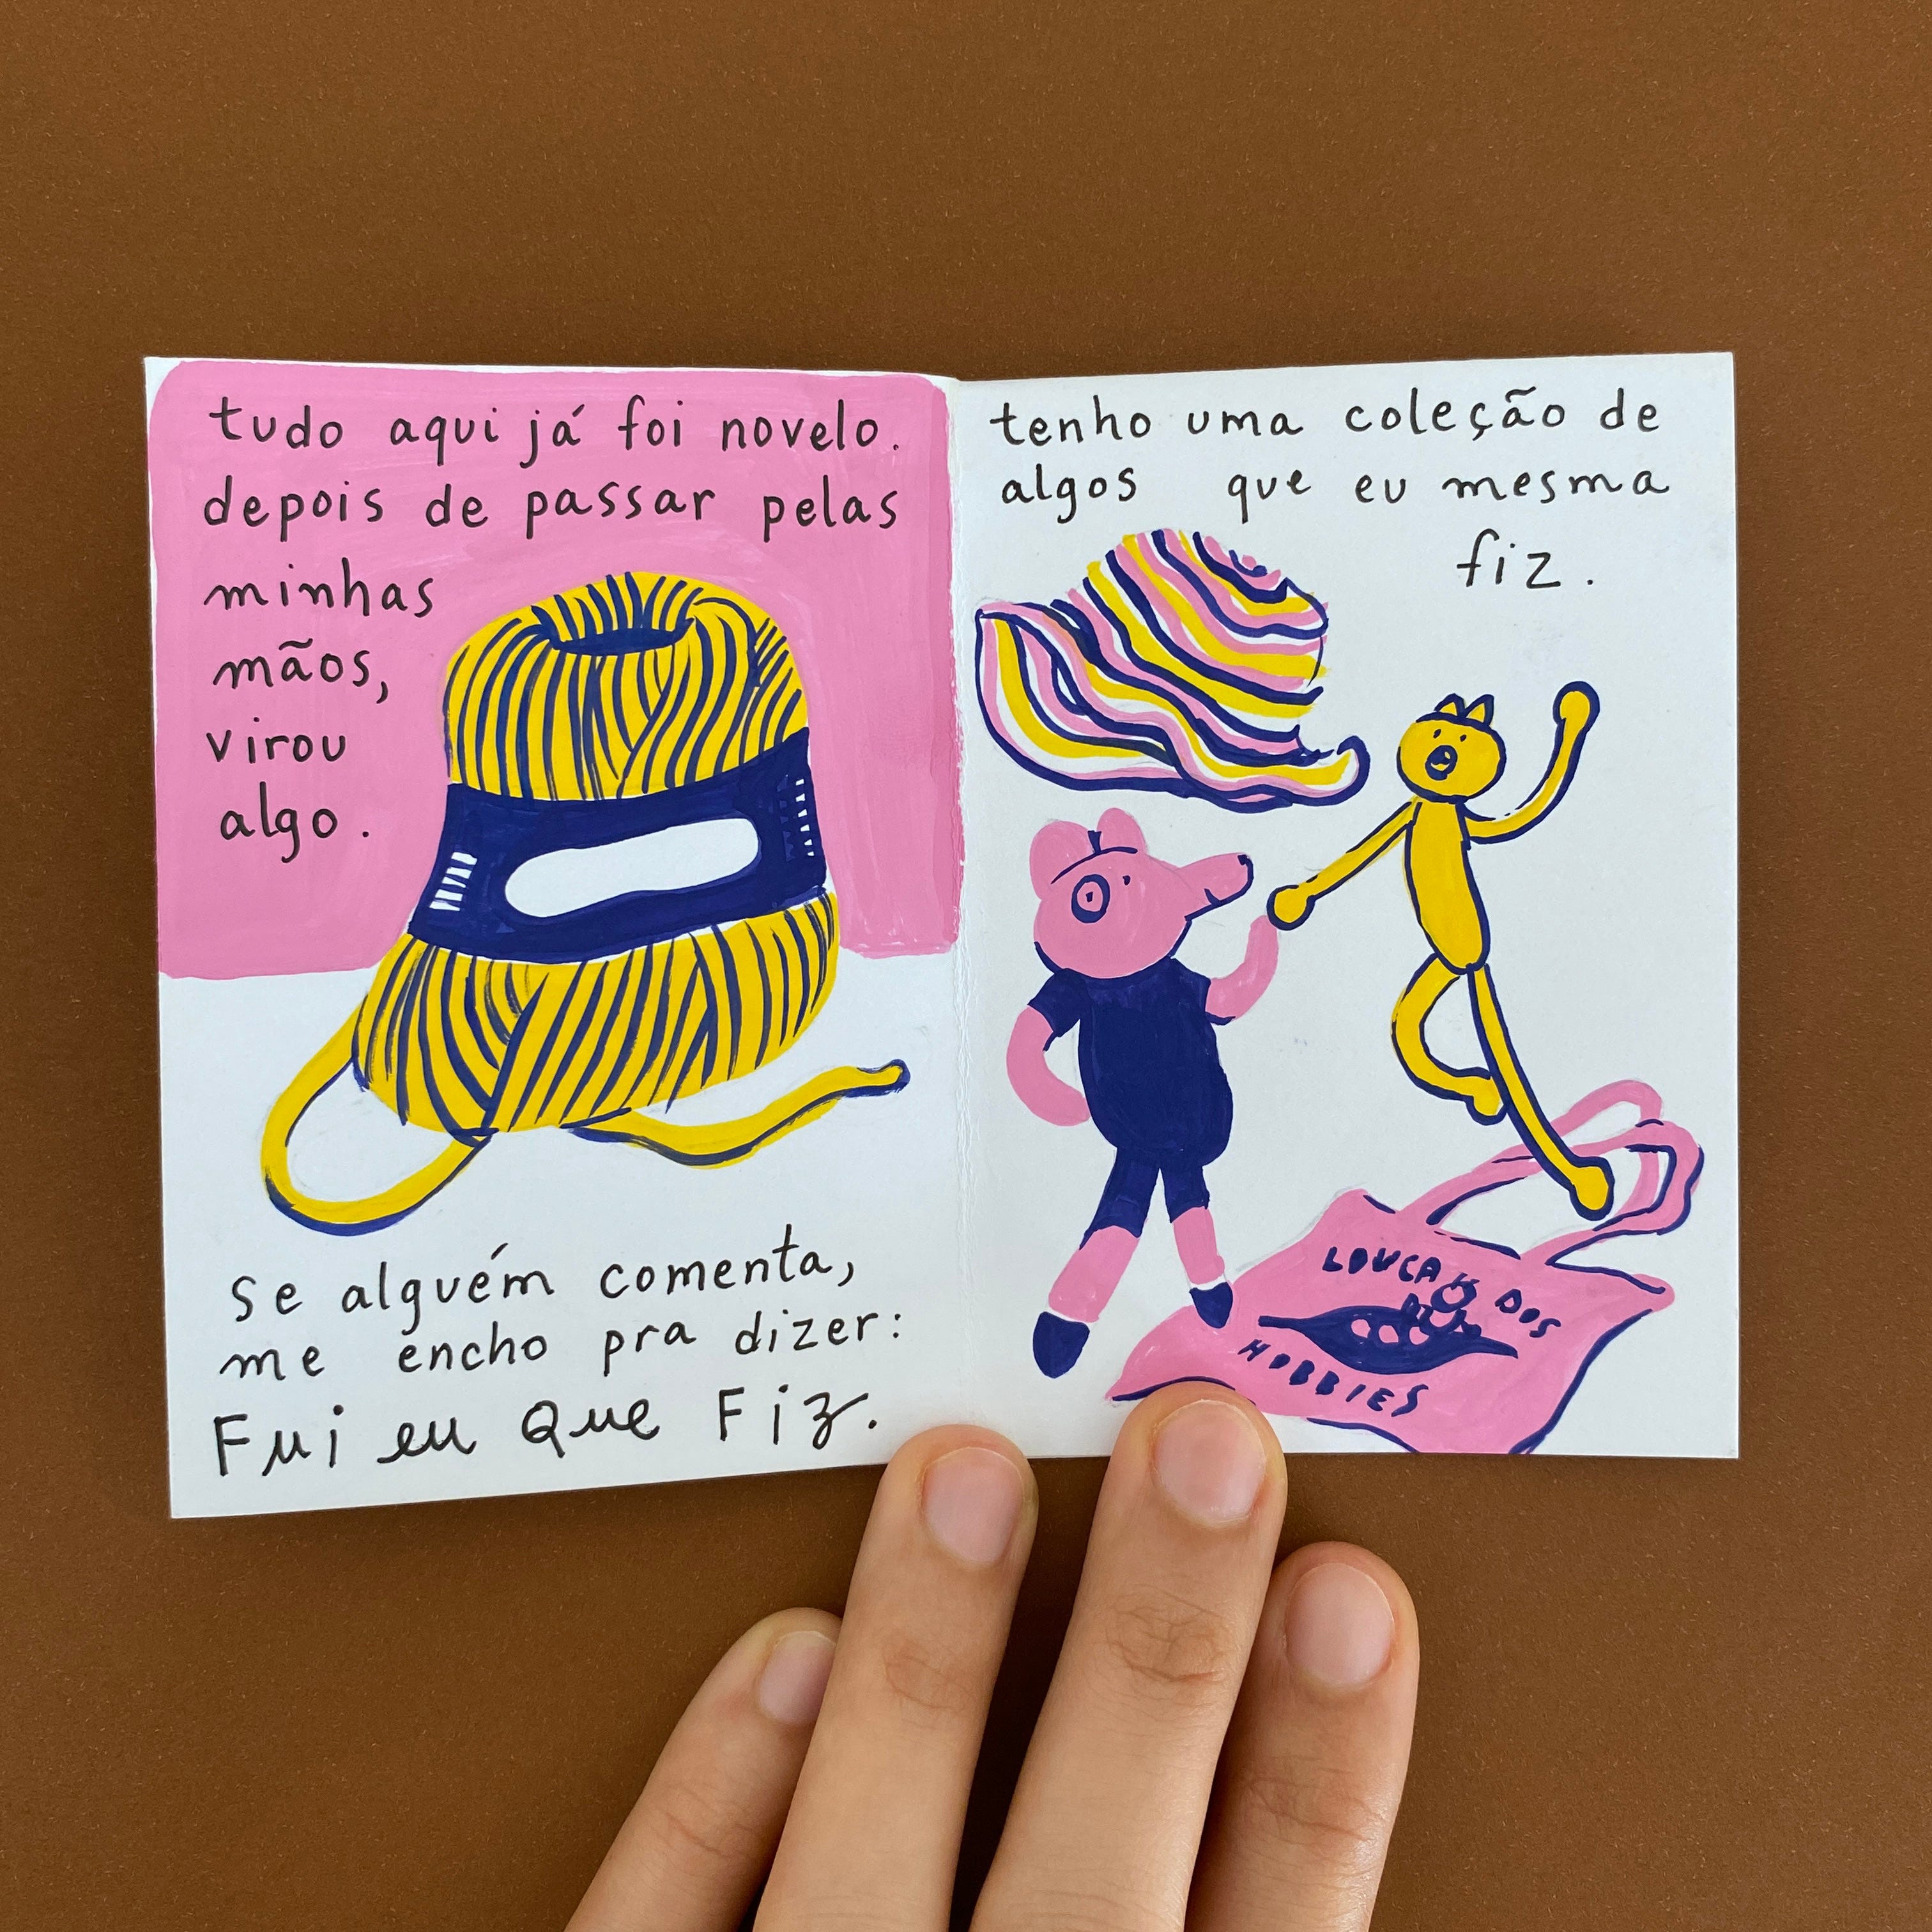 tudo aqui já foi novelo.
depois de passar pelas
minhas
mãos,
virou
algo.
se alguém comenta,
me encho pra dizer:
Fui eu Que Fiz.
tenho uma coleção de
algos que eu mesma
fiz.
LOUCA DOS
HOBBIES